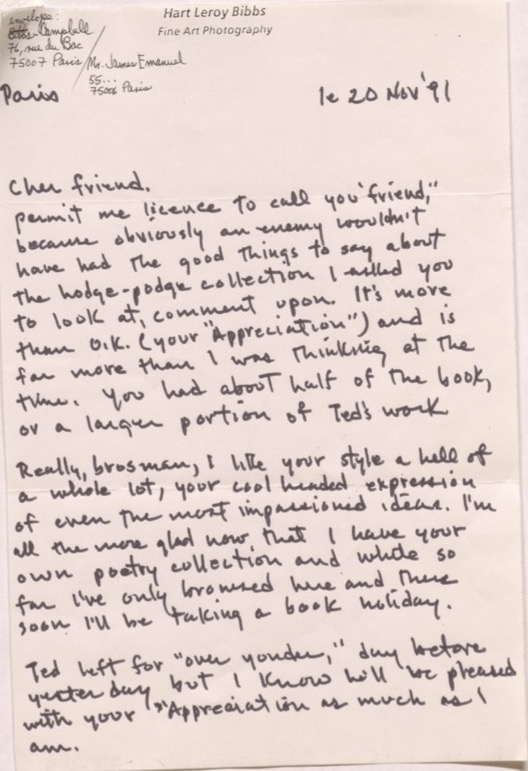 Hart Leroy Bibbs
Fine Art Photography
envelope:
Bibbs Campbell
76, rue du Bac
75007 Paris
Mr. James Emanuel
55...
75006 Paris
Paris
le 20 Nov '91
Cher friend.
permit me licence to call you "friend,"
because obviously an enemy wouldn't
have had the good things to say about
the hodge-podge collection I asked you
to look at, comment upon. It's more
than O.K. (your "Appreciation") and is
far more than I was thinking at the
time. You had about half of the book,
or a larger portion of Ted's work
Really, brosman, I like your style a hell of
a whole lot, your cool headed expression
of even the most impassioned ideas. I'm
all the more glad now that I have your
own poetry collection and while so
far I've only browsed here and there
soon I'll be taking a book holiday.
Ted left for "over yonder," day before
yesterday but I know he'll be pleased
with your "Appreciation as much as I
am.